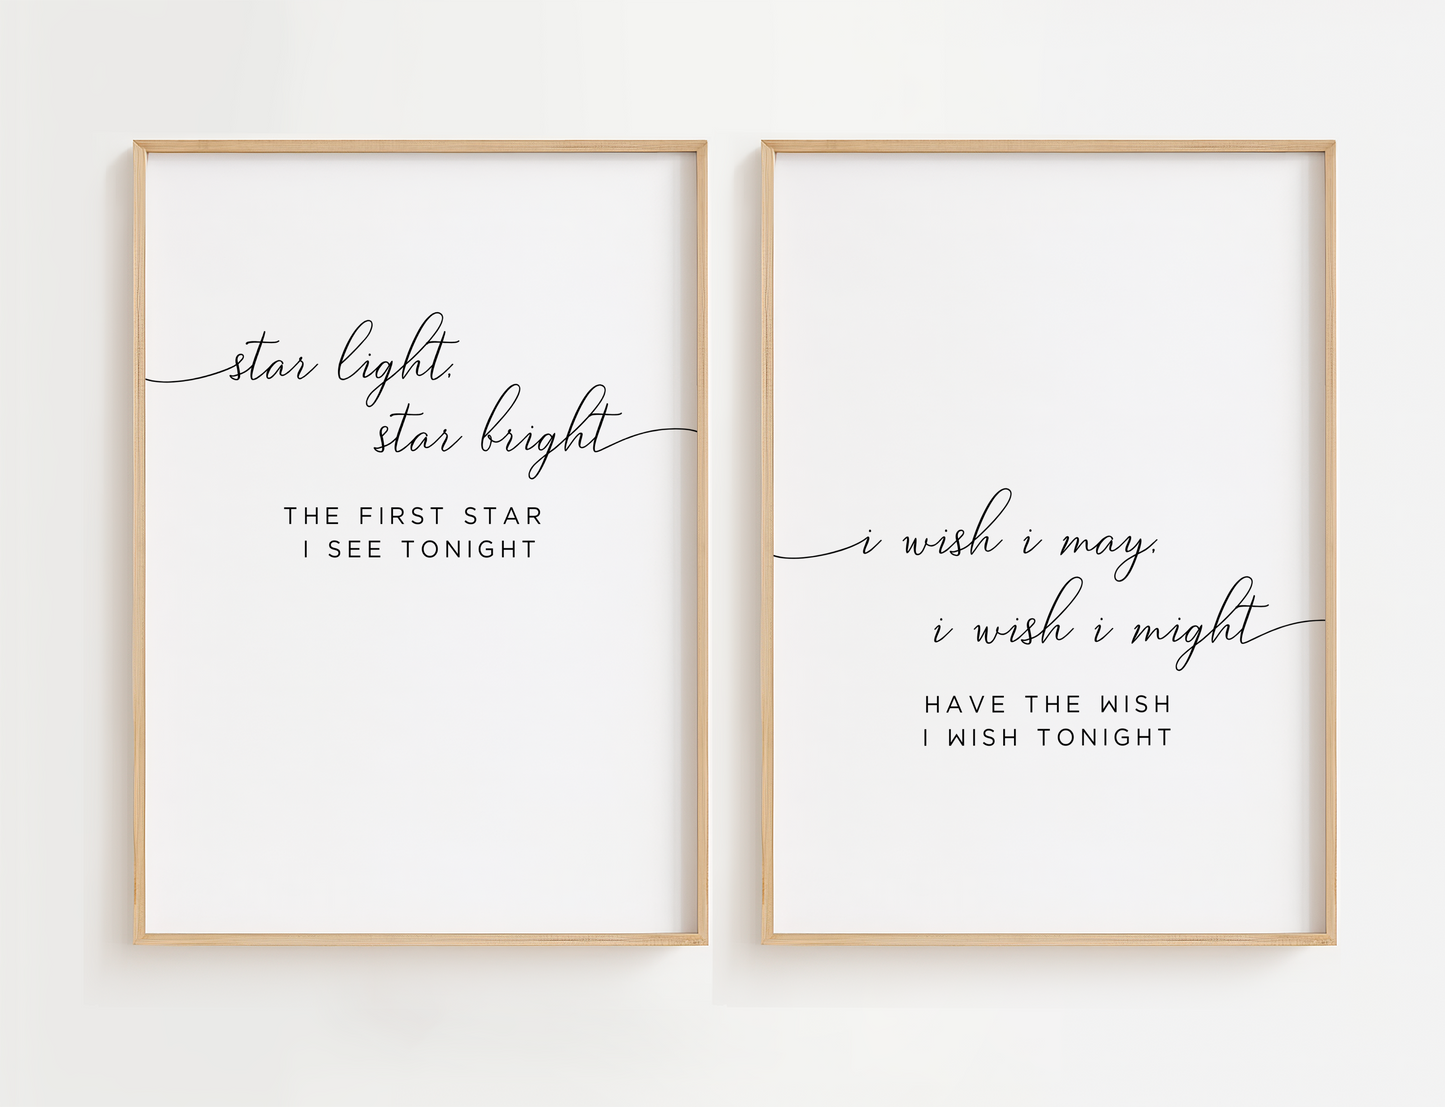 star light,
star bright
THE FIRST STAR
I SEE TONIGHT
i wish i may,
i wish i might
HAVE THE WISH
I WISH TONIGHT